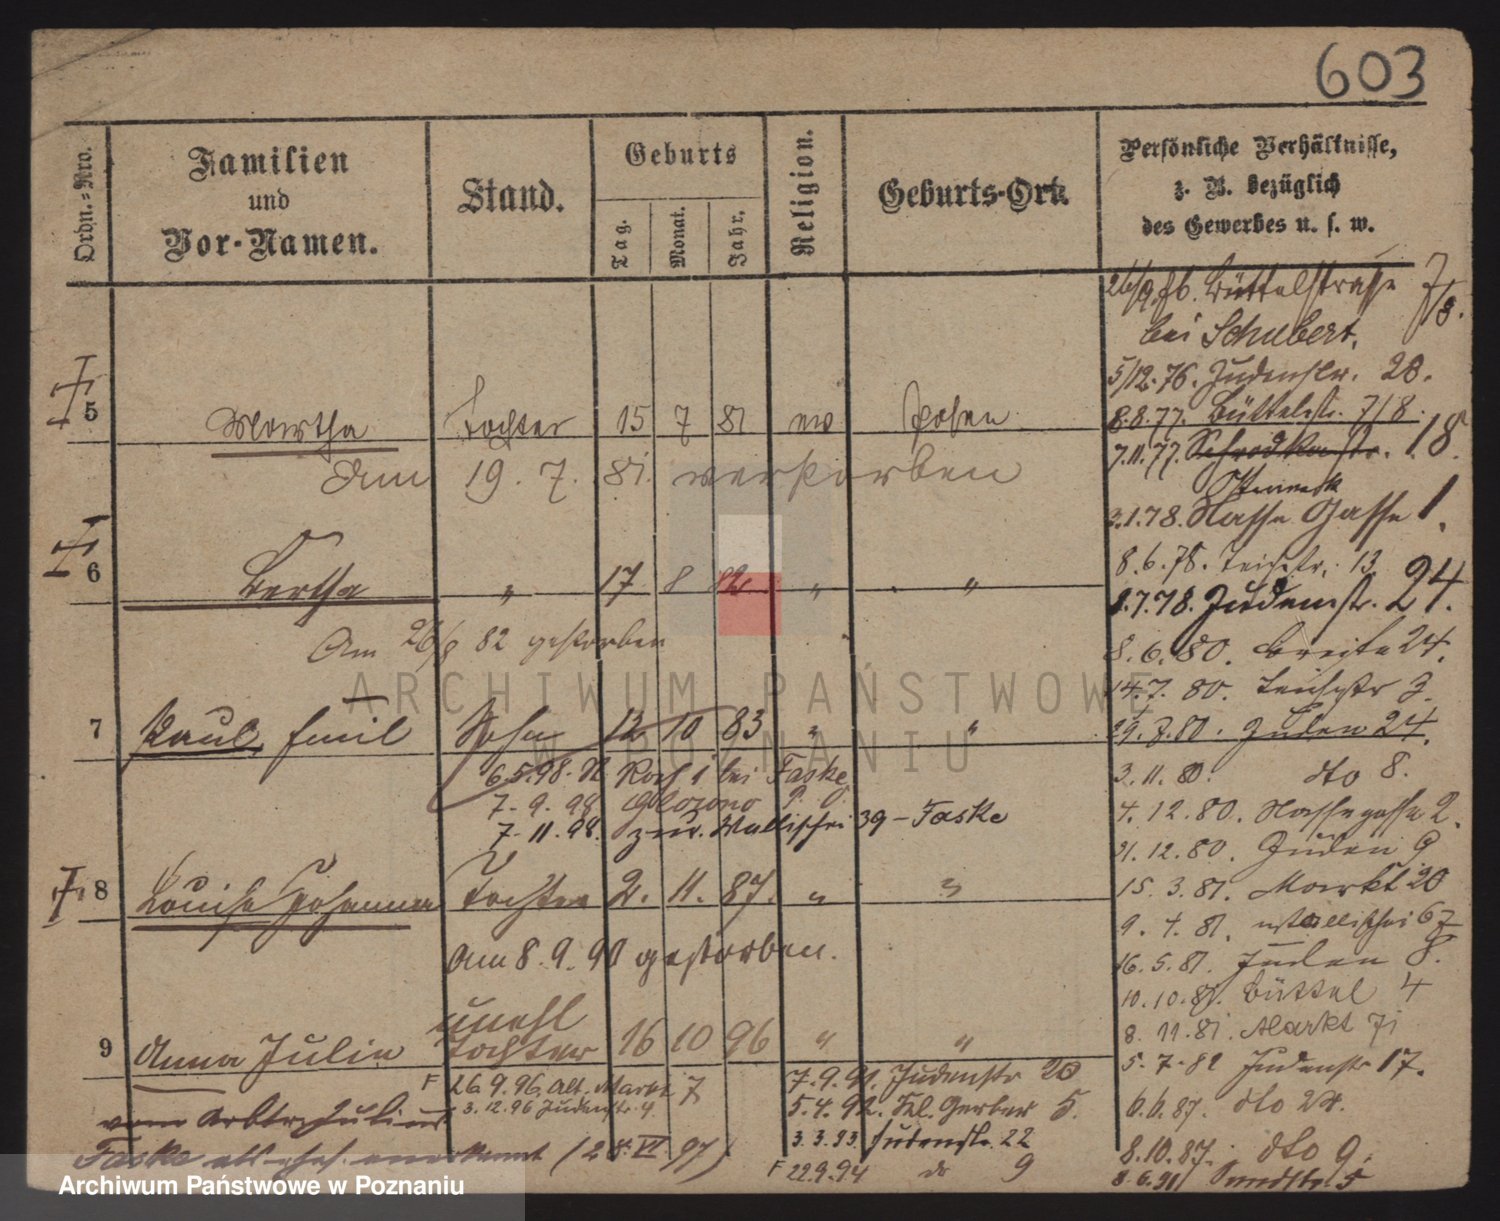 603
Ordn.=Nro.
Familien
und
Vor-Namen.
Stand.
Geburts
Tag.
Monat.
Jahr.
Religion.
Geburts-Ort.
Persönliche Verhältnisse,
z. B. bezüglich
des Gewerbes u. s. w.
26/9.76. Büttelstrasse 7/8.
bei Schubert.
5/12.76. Judenstr. 28.
5 Martha Tochter 15 7 81 ev Posen
8.8.77. Büttelstr. 7/8.
7.11.77. Schrodkastr. 18.
am 19. 7. 81. verstorben
3.1.78. Nasse Gasse 1.
8.6.78. Teichstr. 13
6 Bertha " 17 8 82 " "
8.7.78. Judenstr. 24.
Am 26/8 82 gestorben
8.6.80. Breite 24.
14.7.80. Teichstr 3.
7 Paul, Emil Sohn 12 10 83 " "
29.8.80. Juden 24.
6.5.98. bei Faske
3.11.80. dto 8.
7.9.98
4.12.80. Nassegasse 2.
7.11.98. zur. Wallischei 39 - Faske
21.12.80. Juden 9
8 Louise Johanna Tochter 2. 11. 87. " "
15.3.81. Markt 20
9.4.81. Wallischei 67
am 8.9.90 gestorben.
16.5.81. Juden 8.
10.10.81. Büttel 4
unehl
9 Anna Julie Tochter 16 10 96 " "
8.11.81. Markt 71
5.7.82 Judenstr 17.
F 26.9.96. Alt. Markt 7
7.9.91. Judenstr 20
3.12.96 Judenstr. 4.
5.4.92. Kl. Gerber 5.
6.6.87. dto 24.
vom Arbtr Julius
3.3.93 Judenstr. 22
8.10.87. dto 9.
Faske als ehel. anerkannt (28. VI 97)
F 22.9.94 do 9
8.6.91 Sandstr. 5
ARCHIWUM PAŃSTWOWE
W POZNANIU
Archiwum Państwowe w Poznaniu